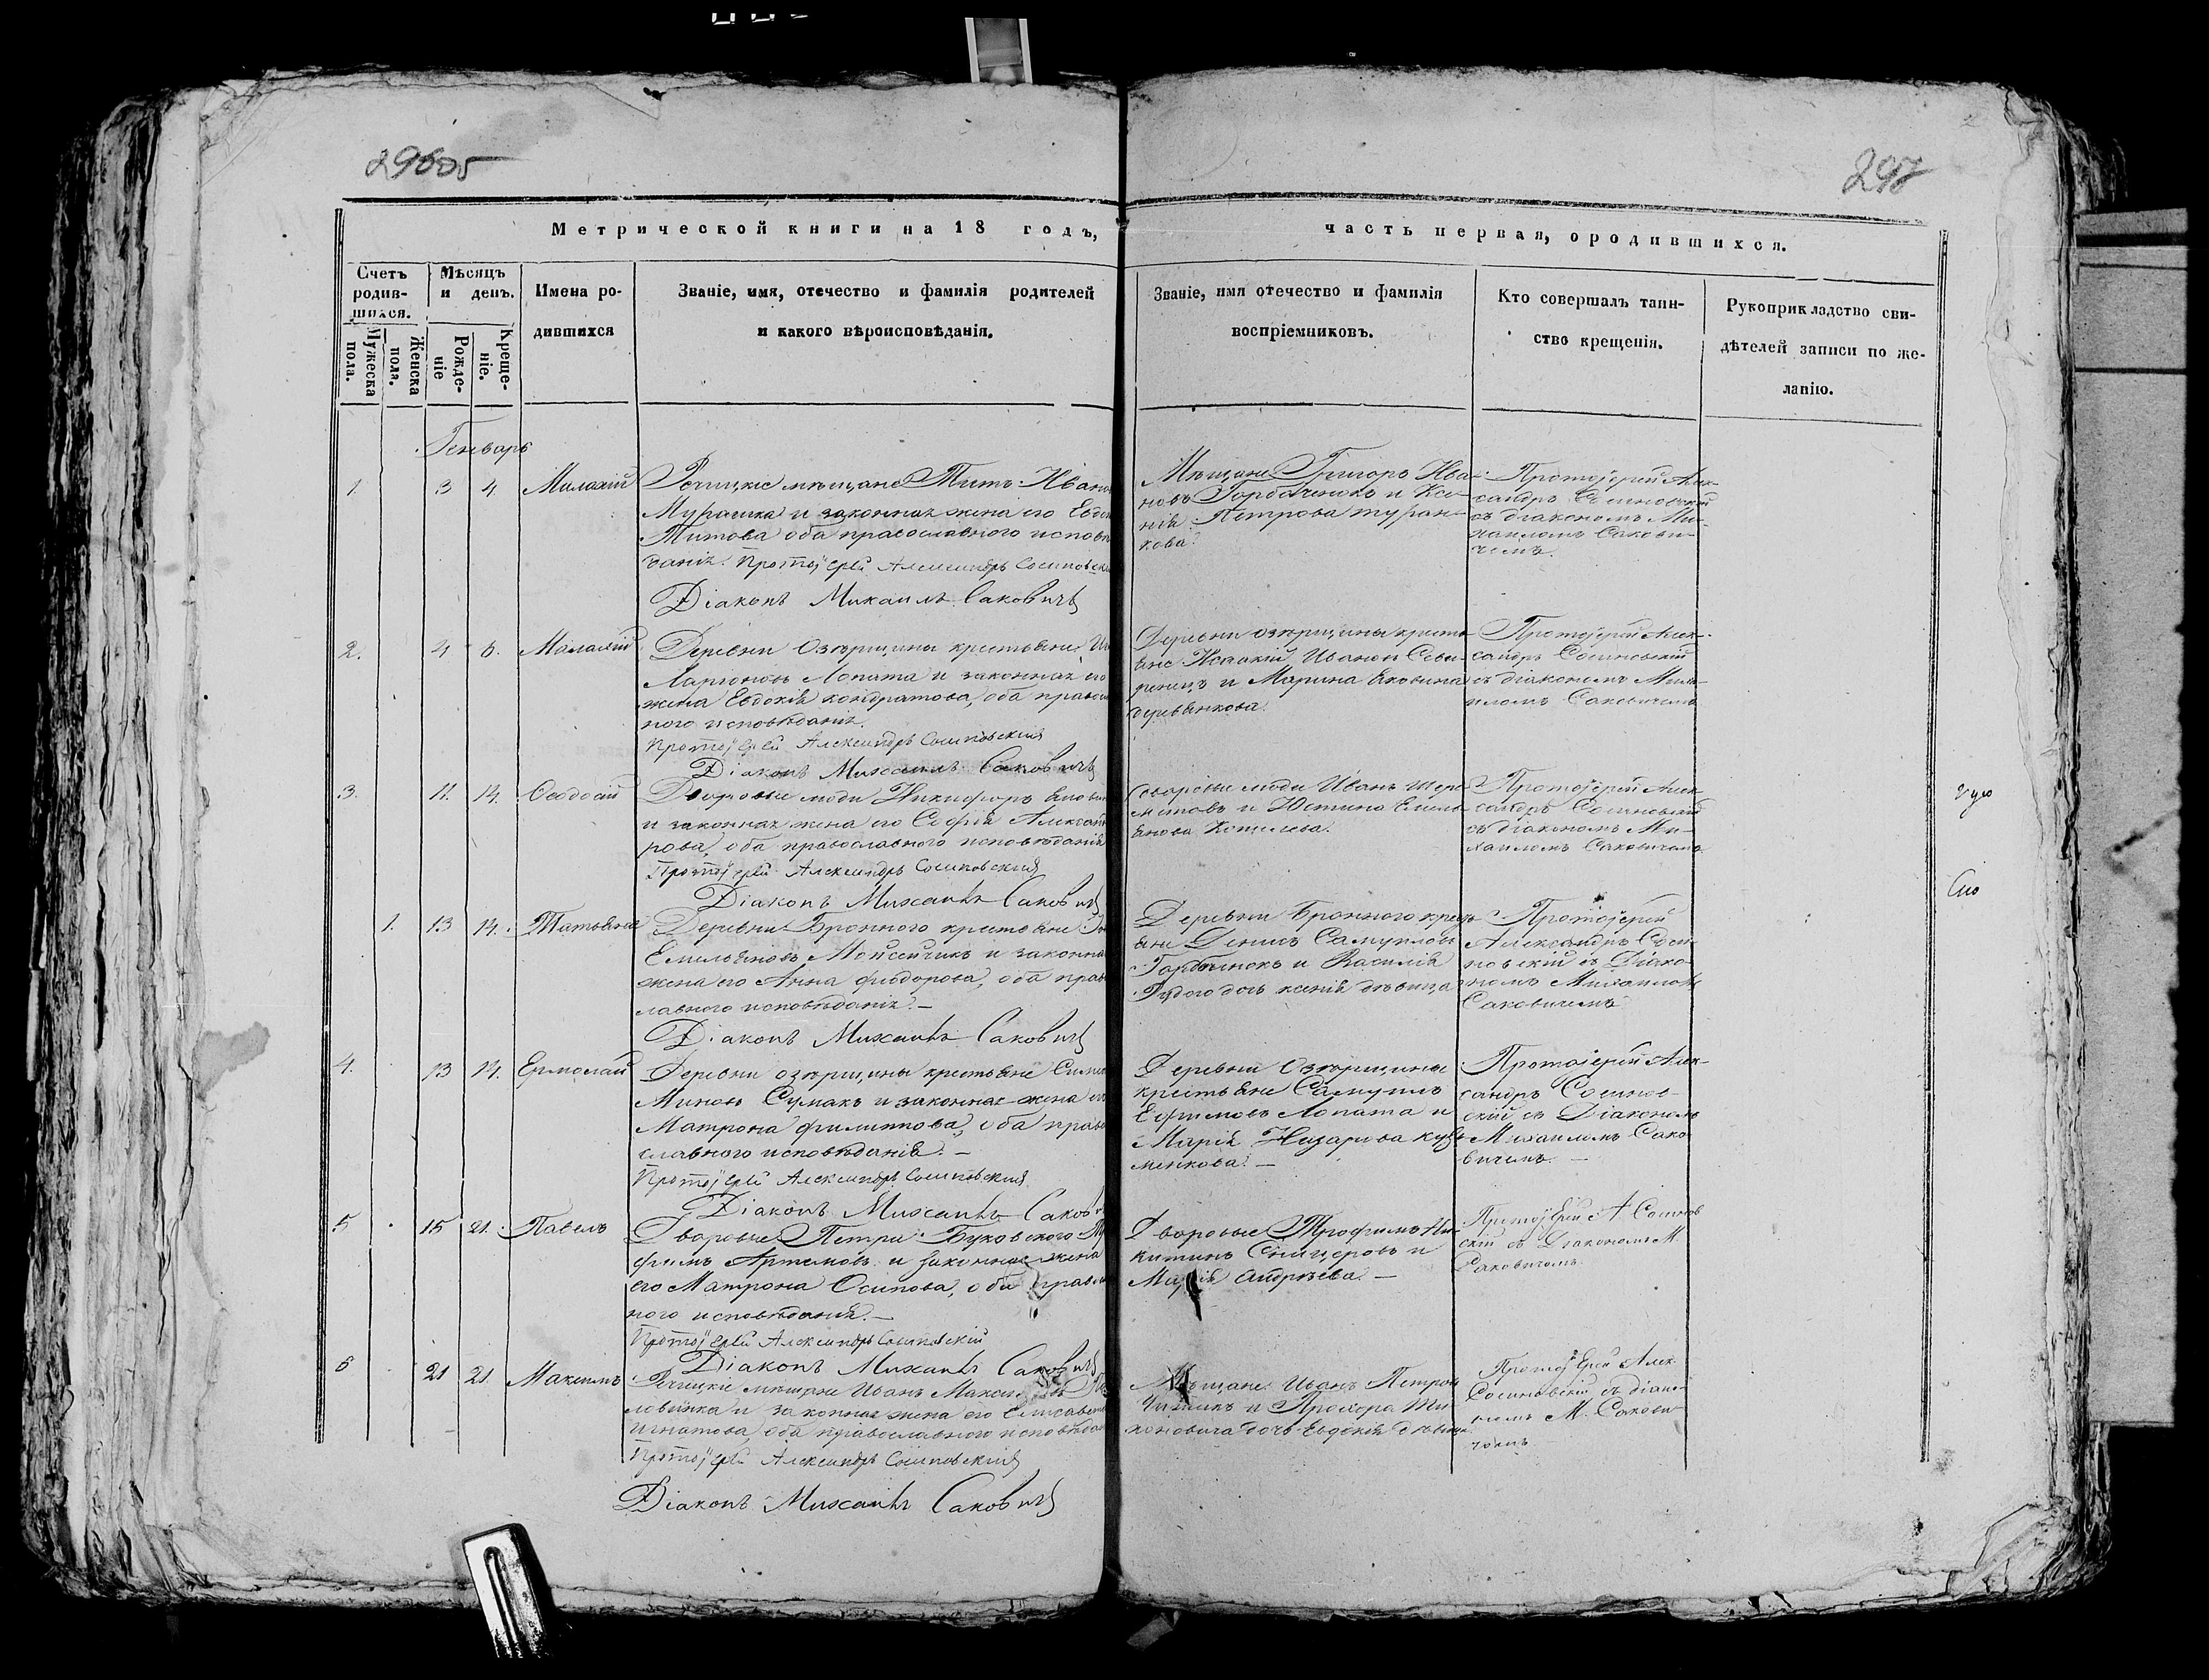 29605
297
Метрической книги на 18 годъ,
часть первая, о родившихся.
Счетъ родив-шихся.
Мужеска пола.
Женска пола.
Мѣсяцъ и день.
Рожде-ніе
Креще-ніе.
Имена ро-
дившихся
Званіе, имя, отечество и фамилія родителей
и какого вѣроисповѣданія.
Званіе, имя отечество и фамилія
воспріемниковъ.
Кто совершалъ таин-
ство крещенія.
Рукоприкладство сви-
дѣтелей записи по же-
ланію.
Генварь
1. 3 4. Малахій
Речицкіе мѣщане Титъ Иван
Мурашка и законная жена его Евдо
Титова оба православного исповѣ
данія. Протоіерей Александръ Сосиновскій
Діаконъ Михаилъ Саковичъ
Мѣщане Григоръ Ива-
новъ Горбаченокъ и Ксе-
нія Петрова Туран-
кова.
Протоіерей Алек-
сандръ Сосиновскій
съ діакономъ Ми-
хаиломъ Сакови-
чемъ.
2. 4 6. Малахій
Деревни Озерщины крестьяне
Ларіоновъ Лопата и законная его
жена Евдокія Кондратова, оба правосл
ного исповѣданія.
Протоіерей Александръ Сосиновскій
Діаконъ Михаилъ Саковичъ
Деревни Озерщины кресть-
яне Исаакій Ивановъ
и Марина Яковина
Деревянкова.
Протоіерей Алек-
сандръ Сосиновскій
съ діакономъ Миха-
иломъ Саковичемъ
3. 11. 14. Ѳеодосій
Дворовые люди Никифоръ
и законная жена его Софія Александ
рова, оба православного исповѣданія
Протоіерей Александръ Сосиновскій
Діаконъ Михаилъ Саковичъ
Дворовые люди Иванъ
и Юстина Емель-
янова
Протоіерей Алек-
сандръ Сосиновскій
съ діакономъ Ми-
хаиломъ Саковичемъ
1. 13 14. Татьяна
Деревни Бронного крестьяне
Емельяновъ Мойсейчикъ и законна
жена его Анна Феодорова, оба прав
лавного исповѣданія. —
Діаконъ Михаилъ Саковичъ
Деревни Бронного кресть
яне Денисъ Самуилов
и Василія
дочь Ксенія дѣвица
Протоіерей
Александръ Соси-
новскій съ Діако-
номъ Михаиломъ
Саковичемъ
4. 13 14. Ермолай
Деревни Озерщины крестьяне
Миновъ Сумакъ и законная жена
Матрона Филиппова, оба право
славного исповѣданія. —
Протоіерей Александръ Сосиновскій
Діаконъ Михаилъ Сакови
Деревни Озерщины
крестьяне Самуилъ
Ефимовъ Лопата и
Марія Назарова Кузь-
менкова. —
Протоіерей Алек-
сандръ Сосинов-
скій съ Діакономъ
Михаиломъ Сако-
вичемъ. —
5 15 21. Павелъ
Дворовые Петра Буковского
фимъ Артемовъ и законная жена
его Матрона Осипова, оба правосл
ного исповѣданія. —
Протоіерей Александръ Сосиновскій
Діаконъ Михаилъ Саковичъ
Дворовые Трофимъ Ни-
китинъ и
Марія Андреева. —
Протоіерей А Сосинов
скій съ Діакономъ М.
Саковичемъ
6 21 21. Максимъ
Речицкіе мѣщане Иванъ
и законная жена его Елисавета
Игнатова, оба православного исповѣдан
Протоіерей Александръ Сосиновскій
Діаконъ Михаилъ Саковичъ
Мѣщане Иванъ Петров
и Прохора Ти-
хоновича дочь Евдокія дѣвица
Протоіерей Алек.
Сосиновскій съ діако-
номъ М. Сакови-
чемъ